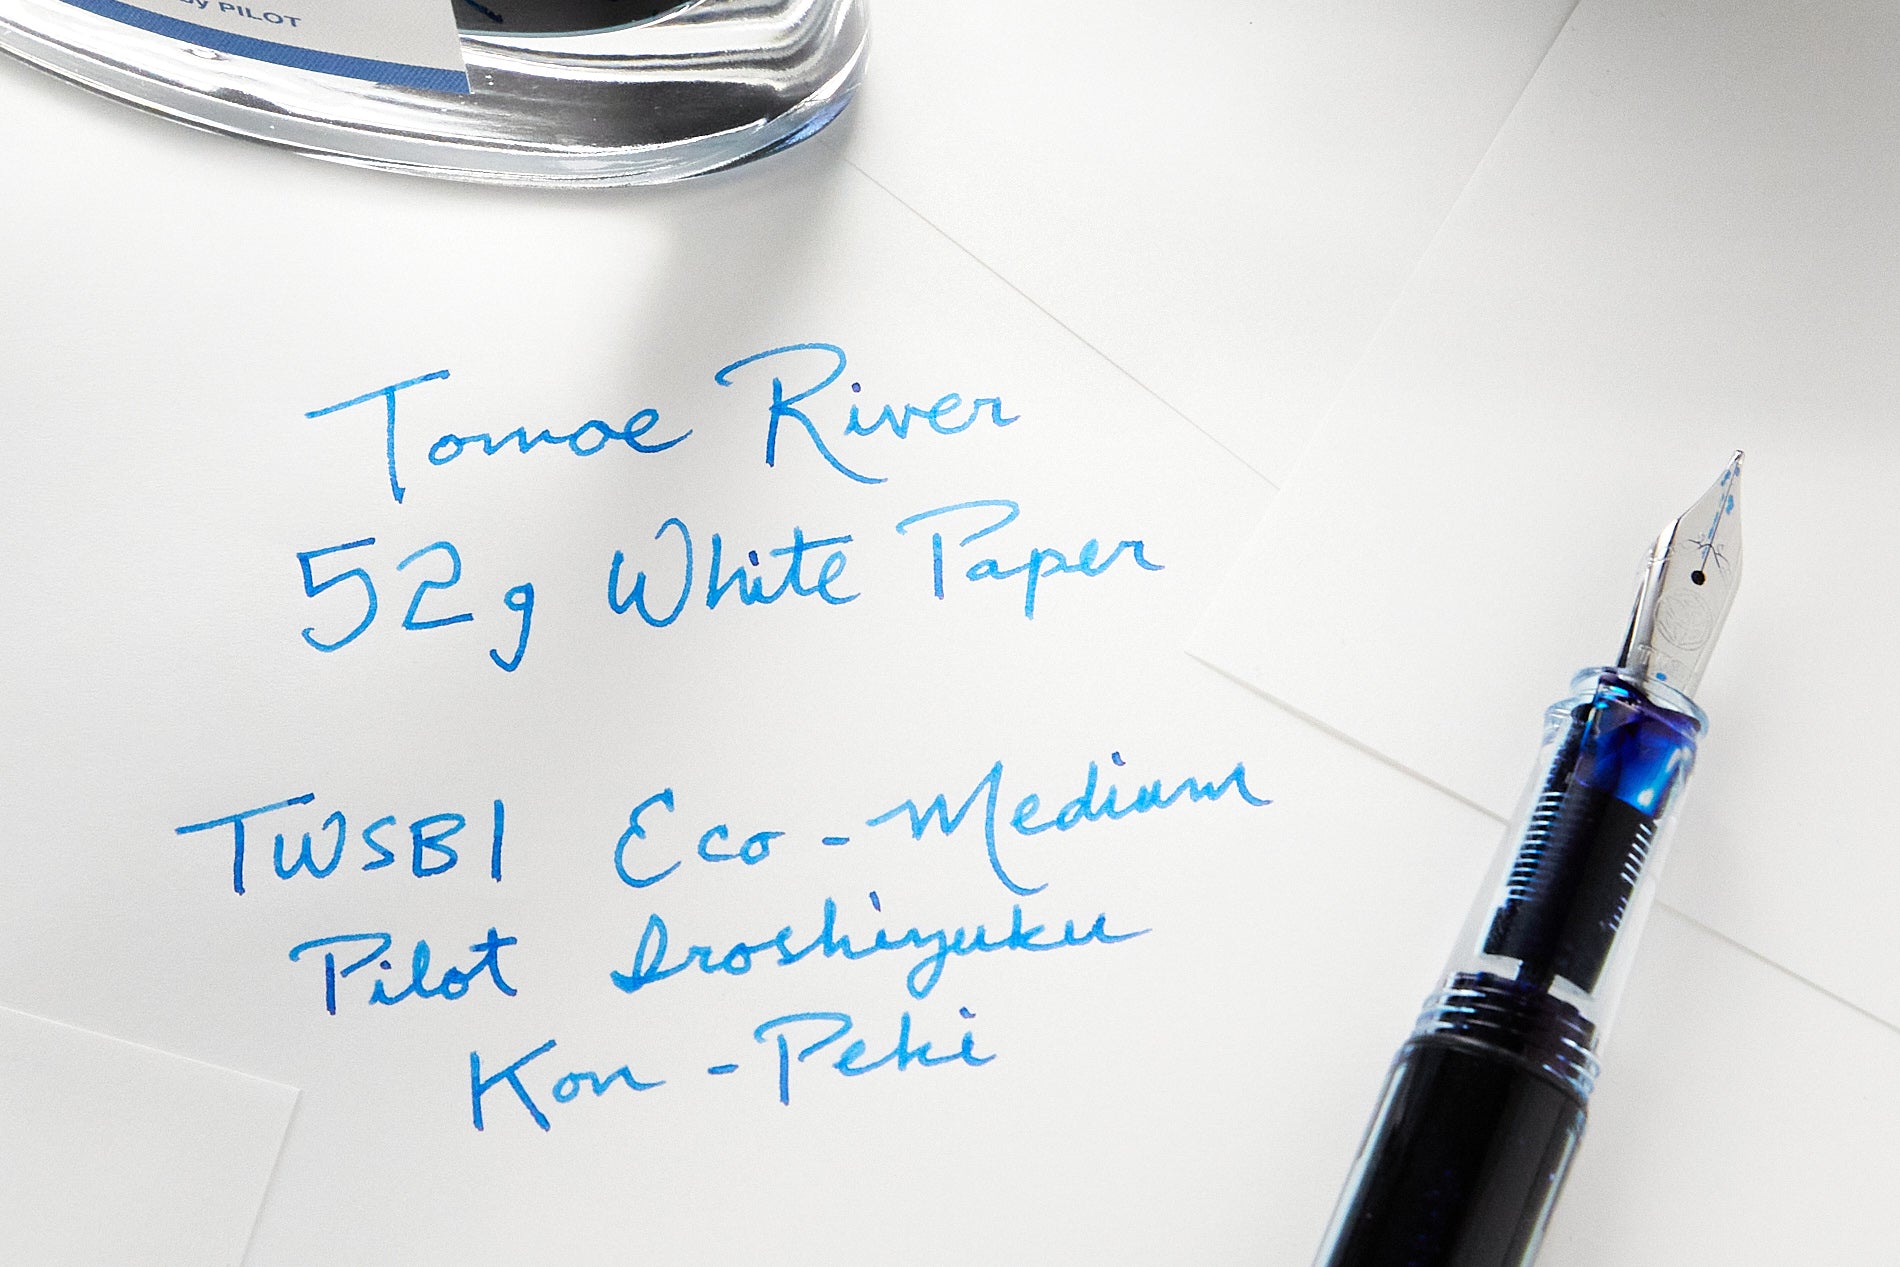 by PILOT
Tomoe River
52g White Paper
TWSBI Eco-Medium
Pilot Iroshizuku
Kon-Peki